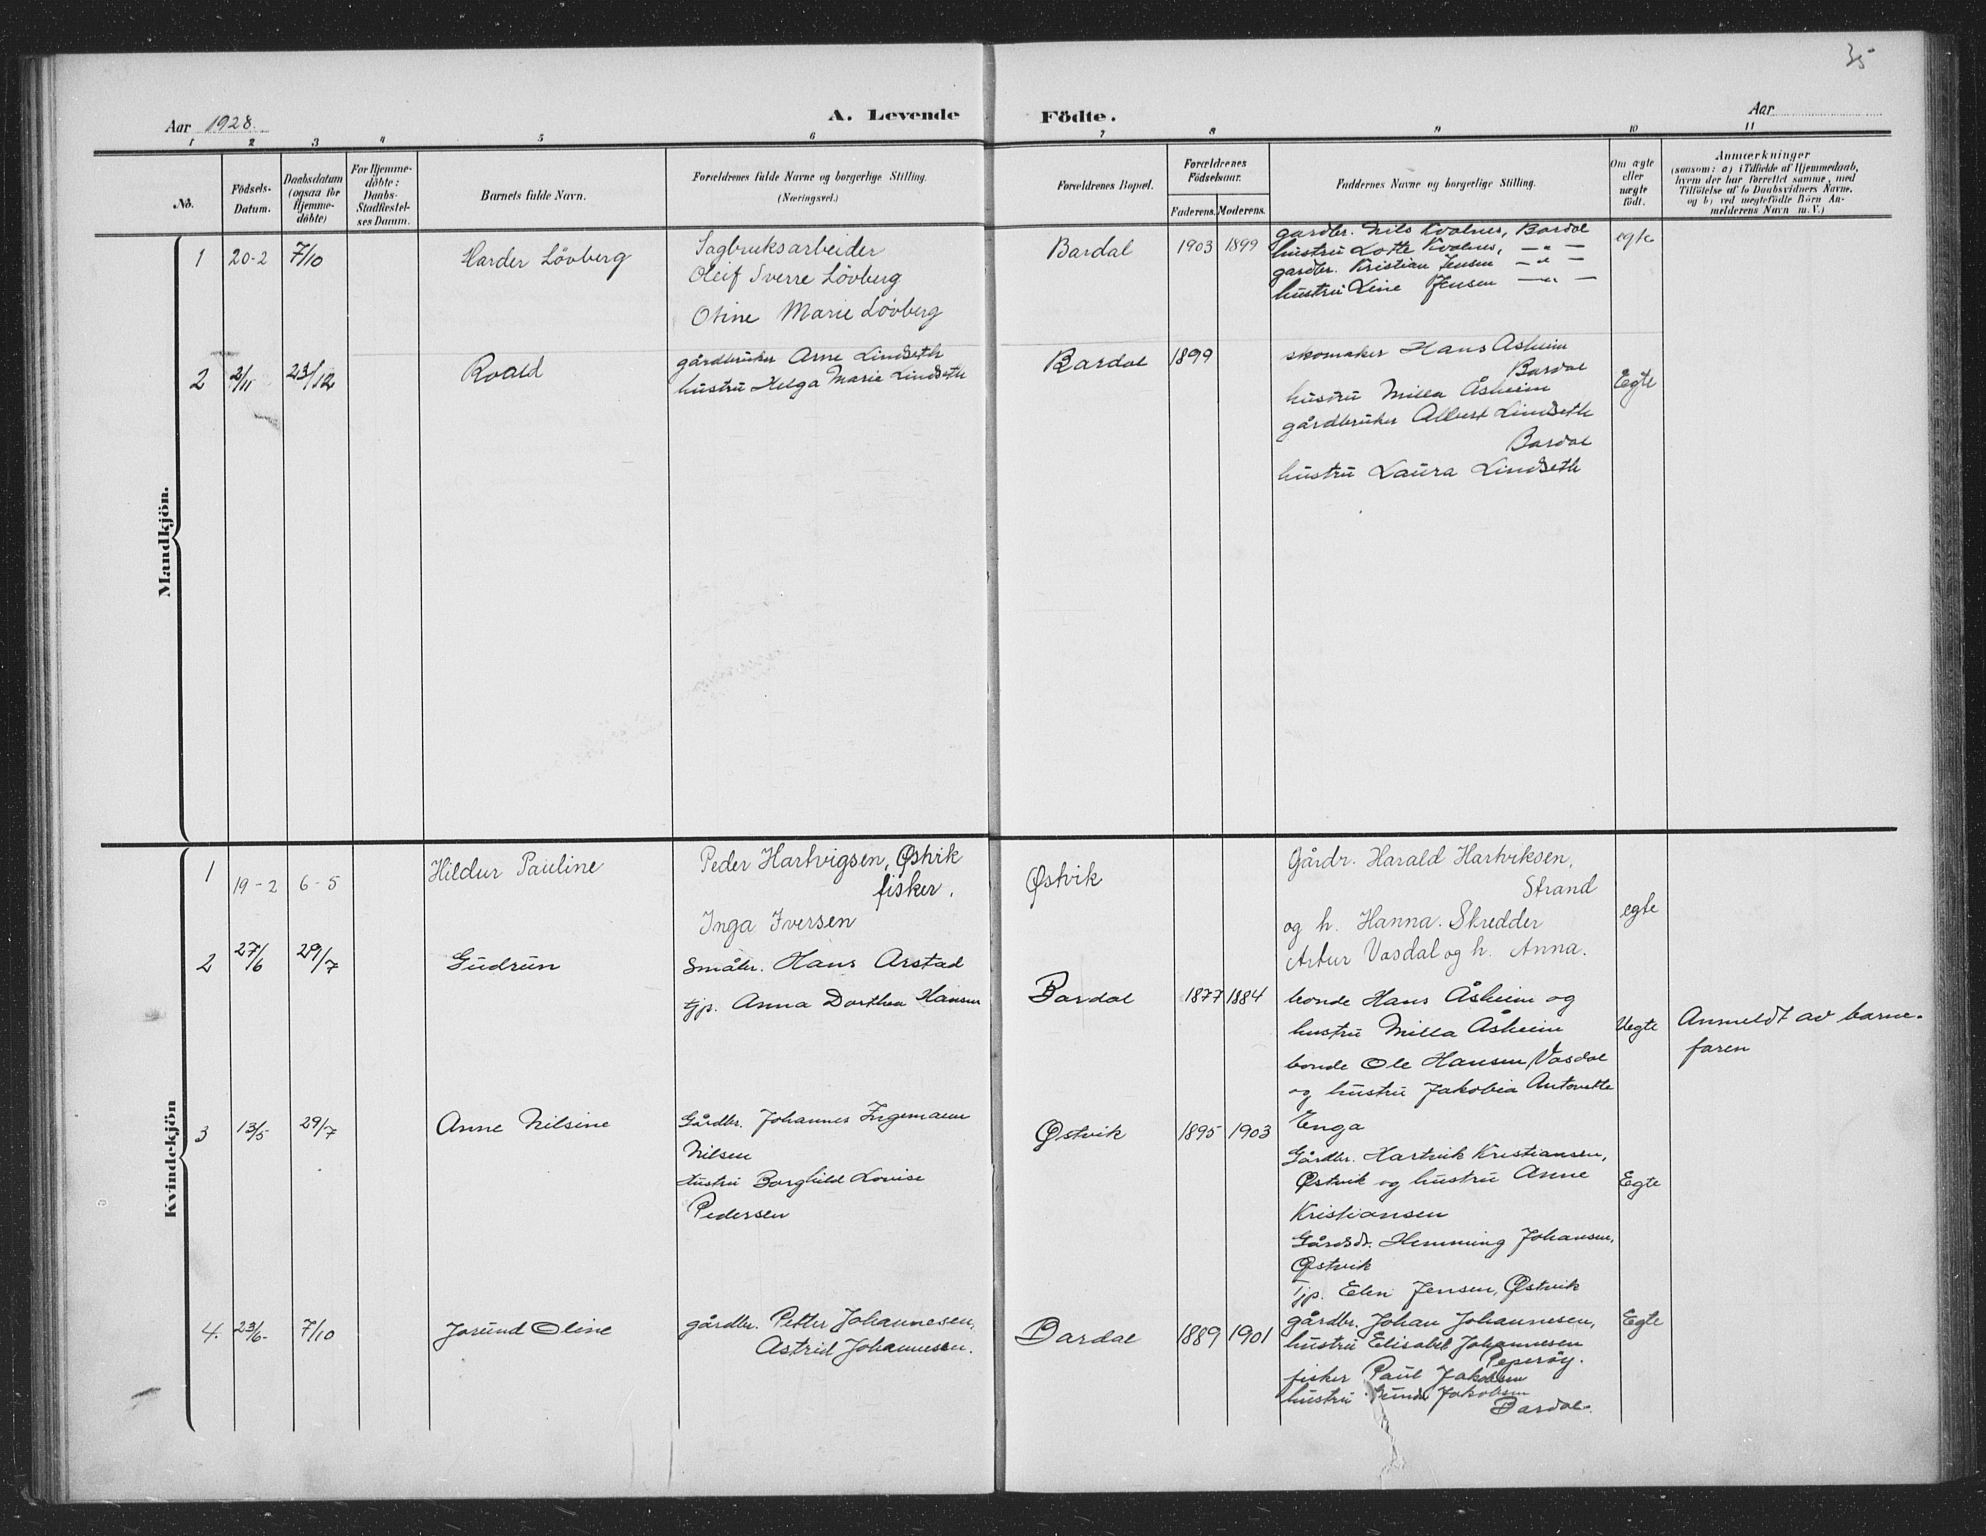 35
Aar 1928.
A. Levende Födte.
Aar
1 2 3 4 5 6 7 8 9 10 11
No.
Födsels-
Datum.
Daabsdatum
(ogsaa for
Hjemme-
döbte)
For Hjemme-
döbte:
Daabs-
Stadfæstel-
ses Datum.
Barnets fulde Navn.
Forældrenes fulde Navne og borgerlige Stilling.
(Næringsvei.)
Forældrenes Bopæl.
Forældrenes
Födselsaar.
Faderens. Moderens.
Faddernes Navne og borgerlige Stilling.
Om ægte
eller
uægte
födt.
Anmærkninger
(saasom: a) i Tilfælde af Hjemmedaab,
hvem der har forrettet samme, med
Tilföielse af to Daabsvidners Navne.
og b) ved uægtefödte Börn An-
melderens Navn m. V.)
Mandkjön.
1 20-2 7/10 Harder Lövberg
Sagbruksarbeider
Oleif Sverre Lövberg
Otine Marie Lövberg
Bardal 1903 1899
gardbr. Nils Kvalnes, Bardal
hustru Lotte Kvalnes, — " —
gardbr. Kristian Jensen — " —
hustru Line Jensen — " —
egte
2 2/11 23/12 Roald
gårdbruker Arne Lindseth
hustru Helga Marie Lindseth
Bardal 1899
skomaker Hans Åsheim
Bardal
hustru Milla Åsheim
gårdbruker Albert Lindseth
Bardal
hustru Laura Lindseth
Egte
Kvindekjön
1 19-2 6-5 Hildur Pauline
Peder Hartvigsen, Østvik
fisker.
Inga Iversen
Østvik
Gårdr. Harald Hartviksen,
Strand
og h. Hanna. Skredder
Artur Vasdal og h. Anna.
egte
2 27/6 29/7 Gudrun
Småbr. Hans Arstad
tjp. Anna Dorthea Hansen
Bardal 1877 1884
bonde Hans Åsheim og
hustru Milla Åsheim
bonde Ole Hansen, Vasdal
og hustru Jakobia Antonette
Enga
Uegte
Anmeldt av barne-
faren
3 13/5 29/7 Anne Nilsine
Gårdbr. Johannes Ingemann
Nilsen
Hustru Borghild Lovise
Pedersen
Østvik 1895 1903
Gårdbr. Hartvik Kristiansen,
Østvik og hustru Anne
Kristiansen
Gårdsdr. Hemming Johansen,
Østvik
Tjp. Elen Jensen, Østvik
Egte
4. 23/6- 7/10 Jorund Oline
gårdbr. Petter Johannesen,
Astrid Johannesen.
Bardal 1889 1901
gårdbr. Johan Johannesen,
hustru Elisabet Johannesen
Peperöy.
fisker Paul Jakobsen
hustru Jakobsen
Bardal.
Egte